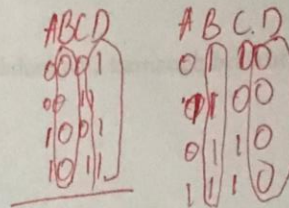 ABCD
0001
0011
1001
1011
A B C. D
0 1 0 0
1 1 0 0
0 1 1 0
1 1 1 0